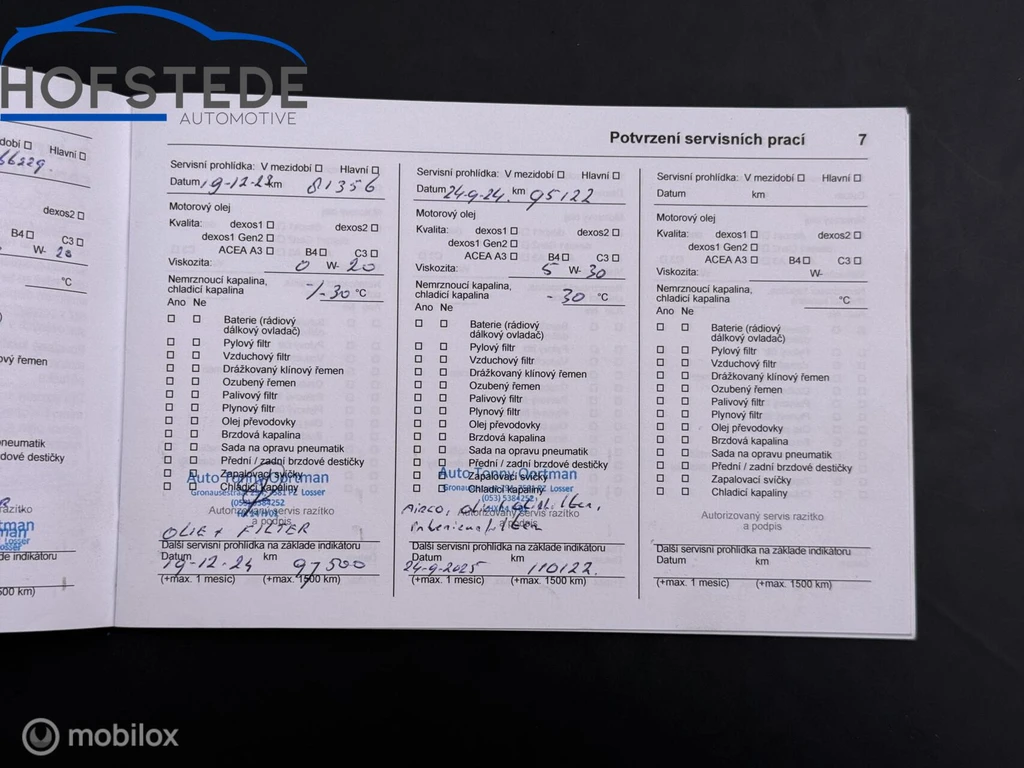 HOFSTEDE
AUTOMOTIVE
Potvrzení servisních prací 7
dobí Hlavní
66229.
dexos2
B4 C3
W- 20
°C
ový řemen
pneumatik
dové destičky
razítko
rtman
Losser
é indikátoru
km
500 km)
Servisní prohlídka: V mezidobí Hlavní
Datum 19-12-23 km 81356
Motorový olej
Kvalita: dexos1 dexos2
dexos1 Gen2
ACEA A3 B4 C3
Viskozita: 0 W- 20
Nemrznoucí kapalina,
chladicí kapalina -30 °C
Ano Ne
Baterie (rádiový
dálkový ovladač)
Pylový filtr
Vzduchový filtr
Drážkovaný klínový řemen
Ozubený řemen
Palivový filtr
Plynový filtr
Olej převodovky
Brzdová kapalina
Sada na opravu pneumatik
Přední / zadní brzdové destičky
Zapalovací svíčky
Chladicí kapaliny
Auto Tonny Oortman
Losser
(053) 5384252
Autorizovaný servis razítko
a podpis
OLIE + FILTER
Další servisní prohlídka na základe indikátoru
Datum km
19-12-24 97500
(+max. 1 mesíc) (+max. 1500 km)
Servisní prohlídka: V mezidobí Hlavní
Datum 24-9-24. km 95122
Motorový olej
Kvalita: dexos1 dexos2
dexos1 Gen2
ACEA A3 B4 C3
Viskozita: 5 W- 30
Nemrznoucí kapalina,
chladicí kapalina -30 °C
Ano Ne
Baterie (rádiový
dálkový ovladač)
Pylový filtr
Vzduchový filtr
Drážkovaný klínový řemen
Ozubený řemen
Palivový filtr
Plynový filtr
Olej převodovky
Brzdová kapalina
Sada na opravu pneumatik
Přední / zadní brzdové destičky
Zapalovací svíčky
Chladicí kapaliny
Auto Tonny Oortman
Losser
(053) 5384252
Autorizovaný servis razítko
a podpis
Další servisní prohlídka na základe indikátoru
Datum km
24-9-2025 110122.
(+max. 1 mesíc) (+max. 1500 km)
Servisní prohlídka: V mezidobí Hlavní
Datum km
Motorový olej
Kvalita: dexos1 dexos2
dexos1 Gen2
ACEA A3 B4 C3
Viskozita: W-
Nemrznoucí kapalina,
chladicí kapalina °C
Ano Ne
Baterie (rádiový
dálkový ovladač)
Pylový filtr
Vzduchový filtr
Drážkovaný klínový řemen
Ozubený řemen
Palivový filtr
Plynový filtr
Olej převodovky
Brzdová kapalina
Sada na opravu pneumatik
Přední / zadní brzdové destičky
Zapalovací svíčky
Chladicí kapaliny
Autorizovaný servis razítko
a podpis
Další servisní prohlídka na základe indikátoru
Datum km
(+max. 1 mesíc) (+max. 1500 km)
mobilox